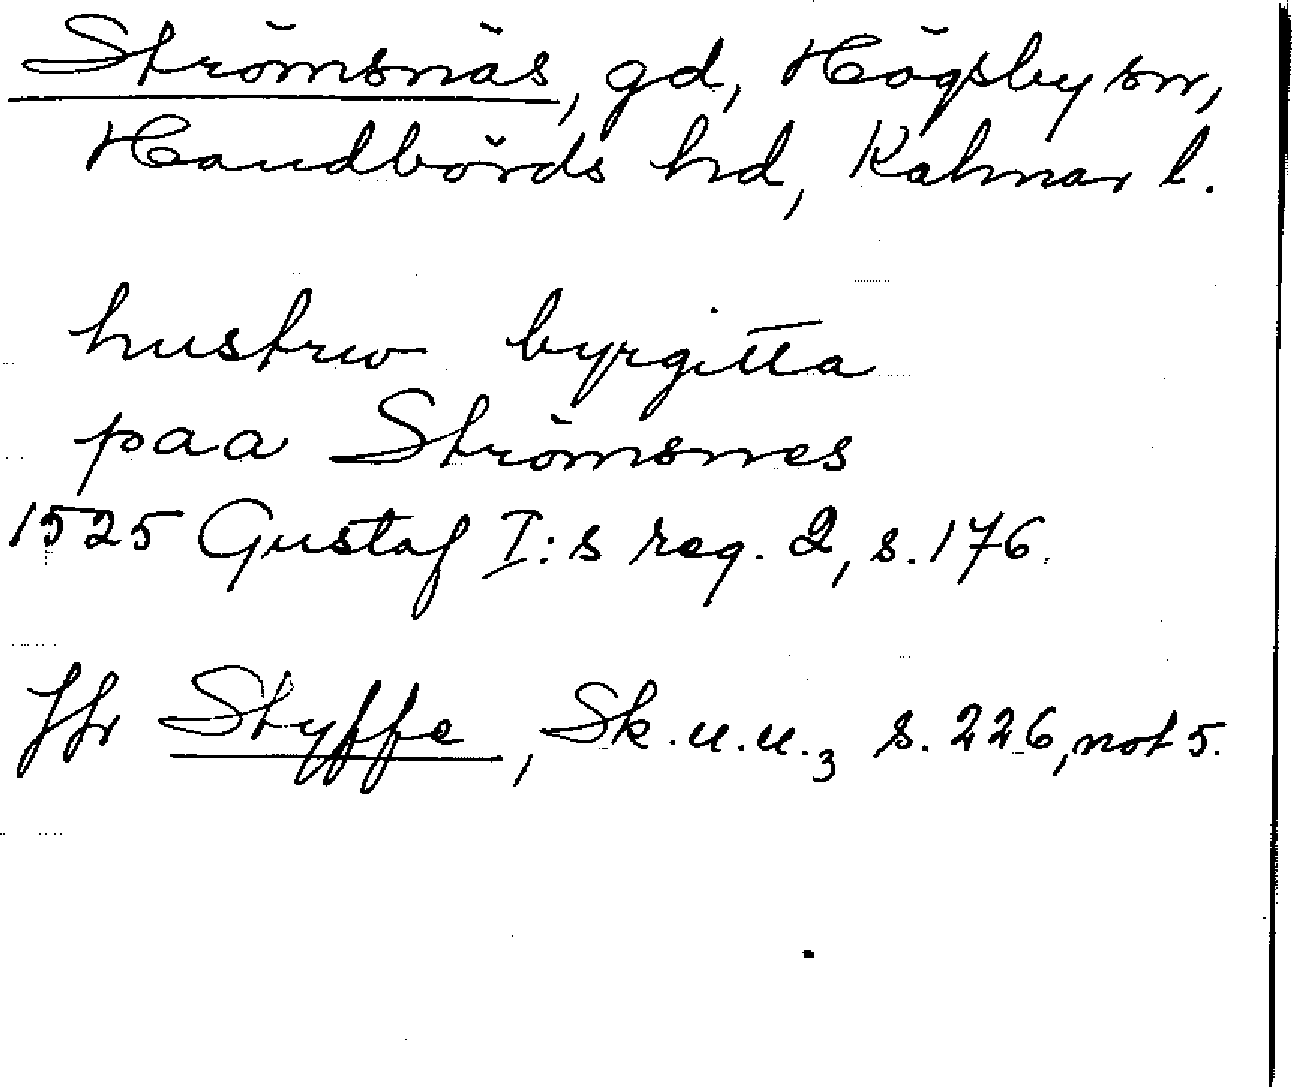 Strömsnäs, gd, Högsby sn,
Handbörds hd, Kalmar l.
hustrw byrgitta
paa Strömsnes
1525 Gustaf I:s reg. 2, s. 176.
Jfr Styffe, Sk.u.u.3 s. 226, not 5.